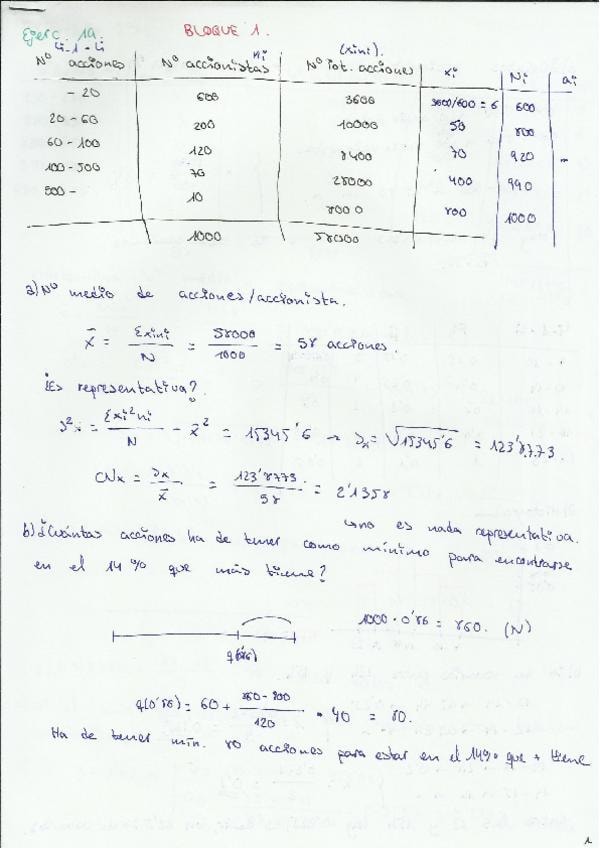 Ejerc. 1a. BLOQUE 1.
Li-1 - Li ni (xini).
Nº acciones Nº accionistas Nº Tot. acciones xi Ni ai
- 20 600 3600 3600/600 = 6 600
20 - 60 200 10000 50 800
60 - 100 120 8400 70 920 -
100 - 500 70 28000 400 990
500 - 10 8000 800 1000
1000 58000
a) Nº medio de acciones/accionista.
x̄ = Σxini / N = 58000 / 1000 = 58 acciones
¿Es representativa?
S²x = Σxi²ni / N - x̄² = 15345'6 → Sx = √15345'6 = 123'8773.
CVx = Sx / x̄ = 123'8773 / 58 = 2'1358
↳ no es nada representativa.
b) ¿Cuántas acciones ha de tener como mínimo para encontrarse
en el 14% que más tiene?
1000 · 0'86 = 860. (N)
q(0'86)
q(0'86) = 60 + 860 - 800 / 120 · 40 = 80.
Ha de tener mín. 80 acciones para estar en el 14% que + tiene
1